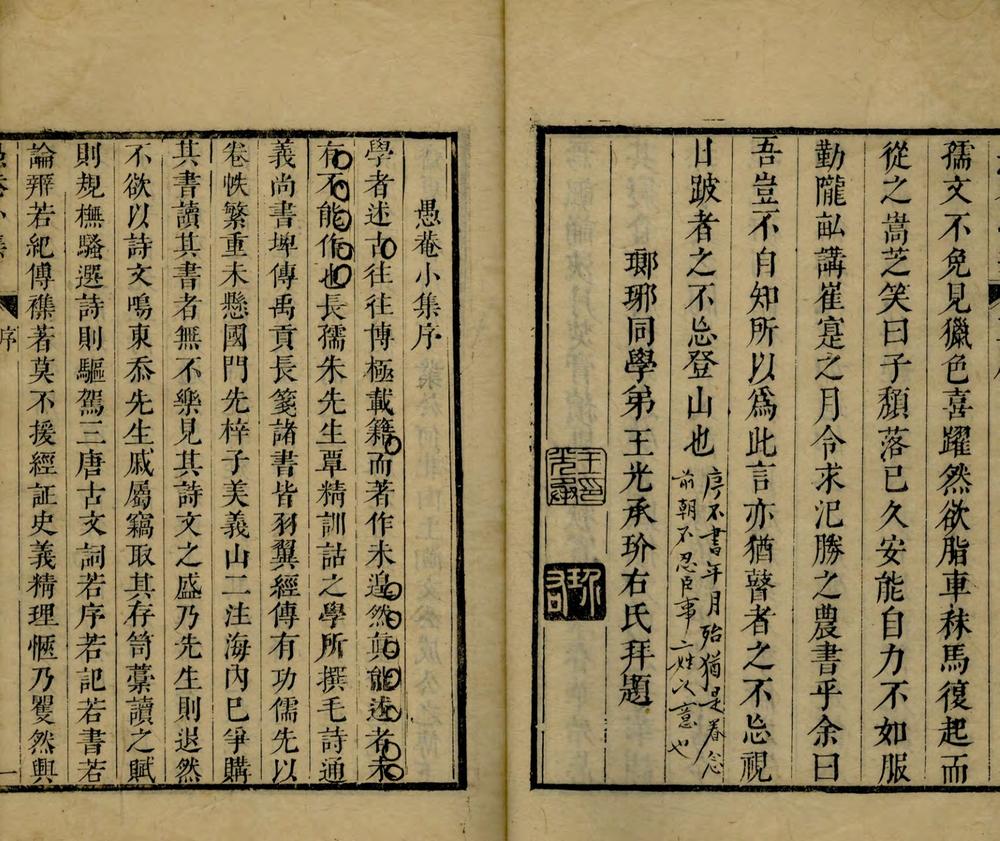 孺文不免見獵色喜躍然欲脂車秣馬復起而
從之嵩芝笑曰子頽落已久安能自力不如服
勤隴畝講崔寔之月令求氾勝之農書乎余曰
吾豈不自知所以爲此言亦猶瞽者之不忘視
日跛者之不忘登山也
序不書年月殆猶是眷念
前朝不忍臣事二姓之意也
瑯琊同學弟王光承玠右氏拜題
愚菴小集序
學者述古往往博極載籍而著作未遑然真能述者未
有不能作也長孺朱先生覃精訓詁之學所撰毛詩通
義尚書埤傳禹貢長箋諸書皆羽翼經傳有功儒先以
卷帙繁重未懸國門先梓子美義山二注海內已爭購
其書讀其書者無不樂見其詩文之盛乃先生則退然
不欲以詩文鳴東忝先生戚屬竊取其存笥藁讀之賦
則規橅騷選詩則驅駕三唐古文詞若序若記若書若
論辯若紀傳襍著莫不援經証史義精理愜乃矍然興
愚菴小集
序
一